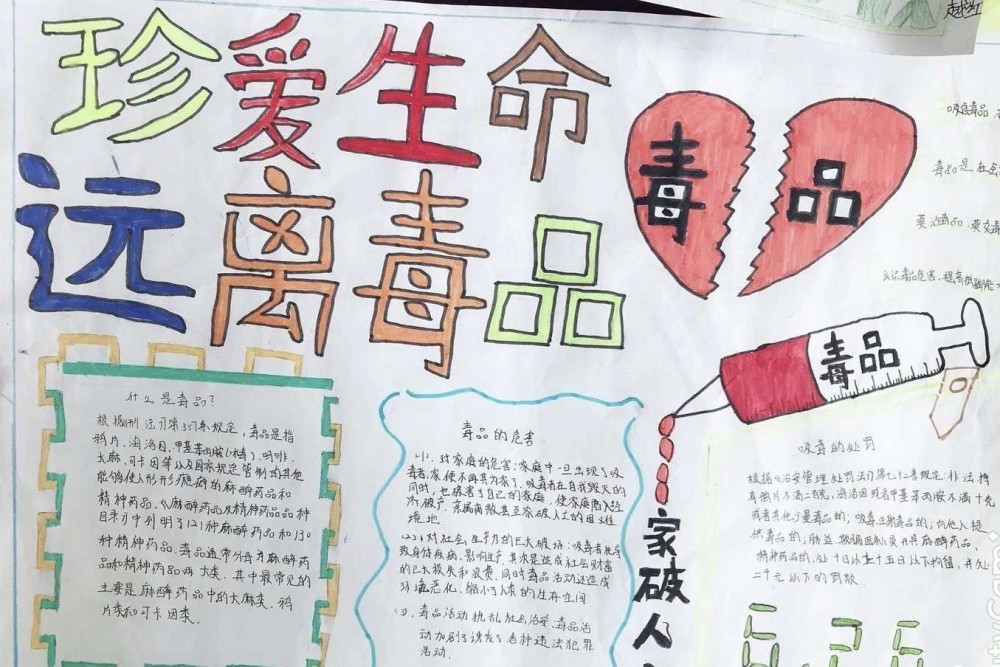 珍爱生命
远离毒品
毒品
毒品
家破人
什么是毒品？
根据刑法第357条规定，毒品是指
鸦片、海洛因、甲基苯丙胺(冰毒)、吗啡、
大麻、可卡因等以及国家规定管制的其他
能够使人形成瘾癖的麻醉药品和
精神药品。《麻醉药品及精神药品品种
目录》中列明了121种麻醉药品和130
种精神药品。毒品通常分为麻醉药
品和精神药品两大类。其中最常见的
主要是麻醉药品中的大麻类、鸦
片类和可卡因类。
毒品的危害
(1)、对家庭的危害：家庭中一旦出现了吸
毒者，家便不再其为家了。吸毒者在自我毁灭的
同时，也破害了自己的家庭，使家庭陷入经
济破产、亲属离散甚至家破人亡的困难
境地
(2)、对社会生产力的巨大破坏：吸毒者首先导
致身体疾病，影响生产，其次是造成社会财富
的巨大损失和浪费，同时毒品活动还造成
环境恶化，缩小了人类的生存空间
(3)、毒品活动扰乱社会治安：毒品活
动加剧了诱发了各种违法犯罪
活动.
吸毒的处罚
根据《治安管理处罚法》第七十二条规定：非法持
有鸦片不满二百克、海洛因或者甲基苯丙胺不满十克
或者其他少量毒品的；吸毒注射毒品的；向他人提
供毒品的；胁迫、欺骗医务人员开具麻醉药品、
精神药品的，处十日以上十五日以下拘留，并处
二千元以下的罚款.
吸食毒品
毒品是社会
莫沾毒品，莫交毒
认识毒品危害，提高抵御能
6.26